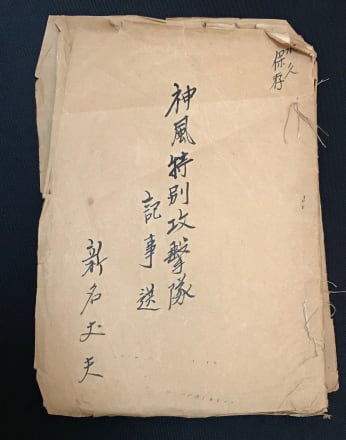 永久
保存
神風特別攻撃隊
記事送
新名丈夫